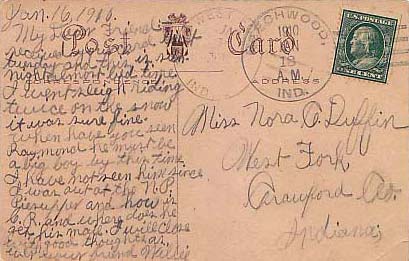 Jan. 16, 1910.
My dear Friend
received your card last
tuesday and this is sun-
night almost bed time
I went sleigh riding
twice on the snow
it was sure fine.
When have you seen
Raymond he must be
a big boy by this time
I have not seen him since
I was out at the N.P.
pie supper and how is
C.R. and where does he
get his mail. I will close
with good thoughts as
your friend Willie
Post Card
ADDRESS
WEST
IND.
BEECHWOOD,
1910
JAN
18
A.M.
IND.
Miss Nora O. Duffin
West Fork
Crawford Co.
Indiana